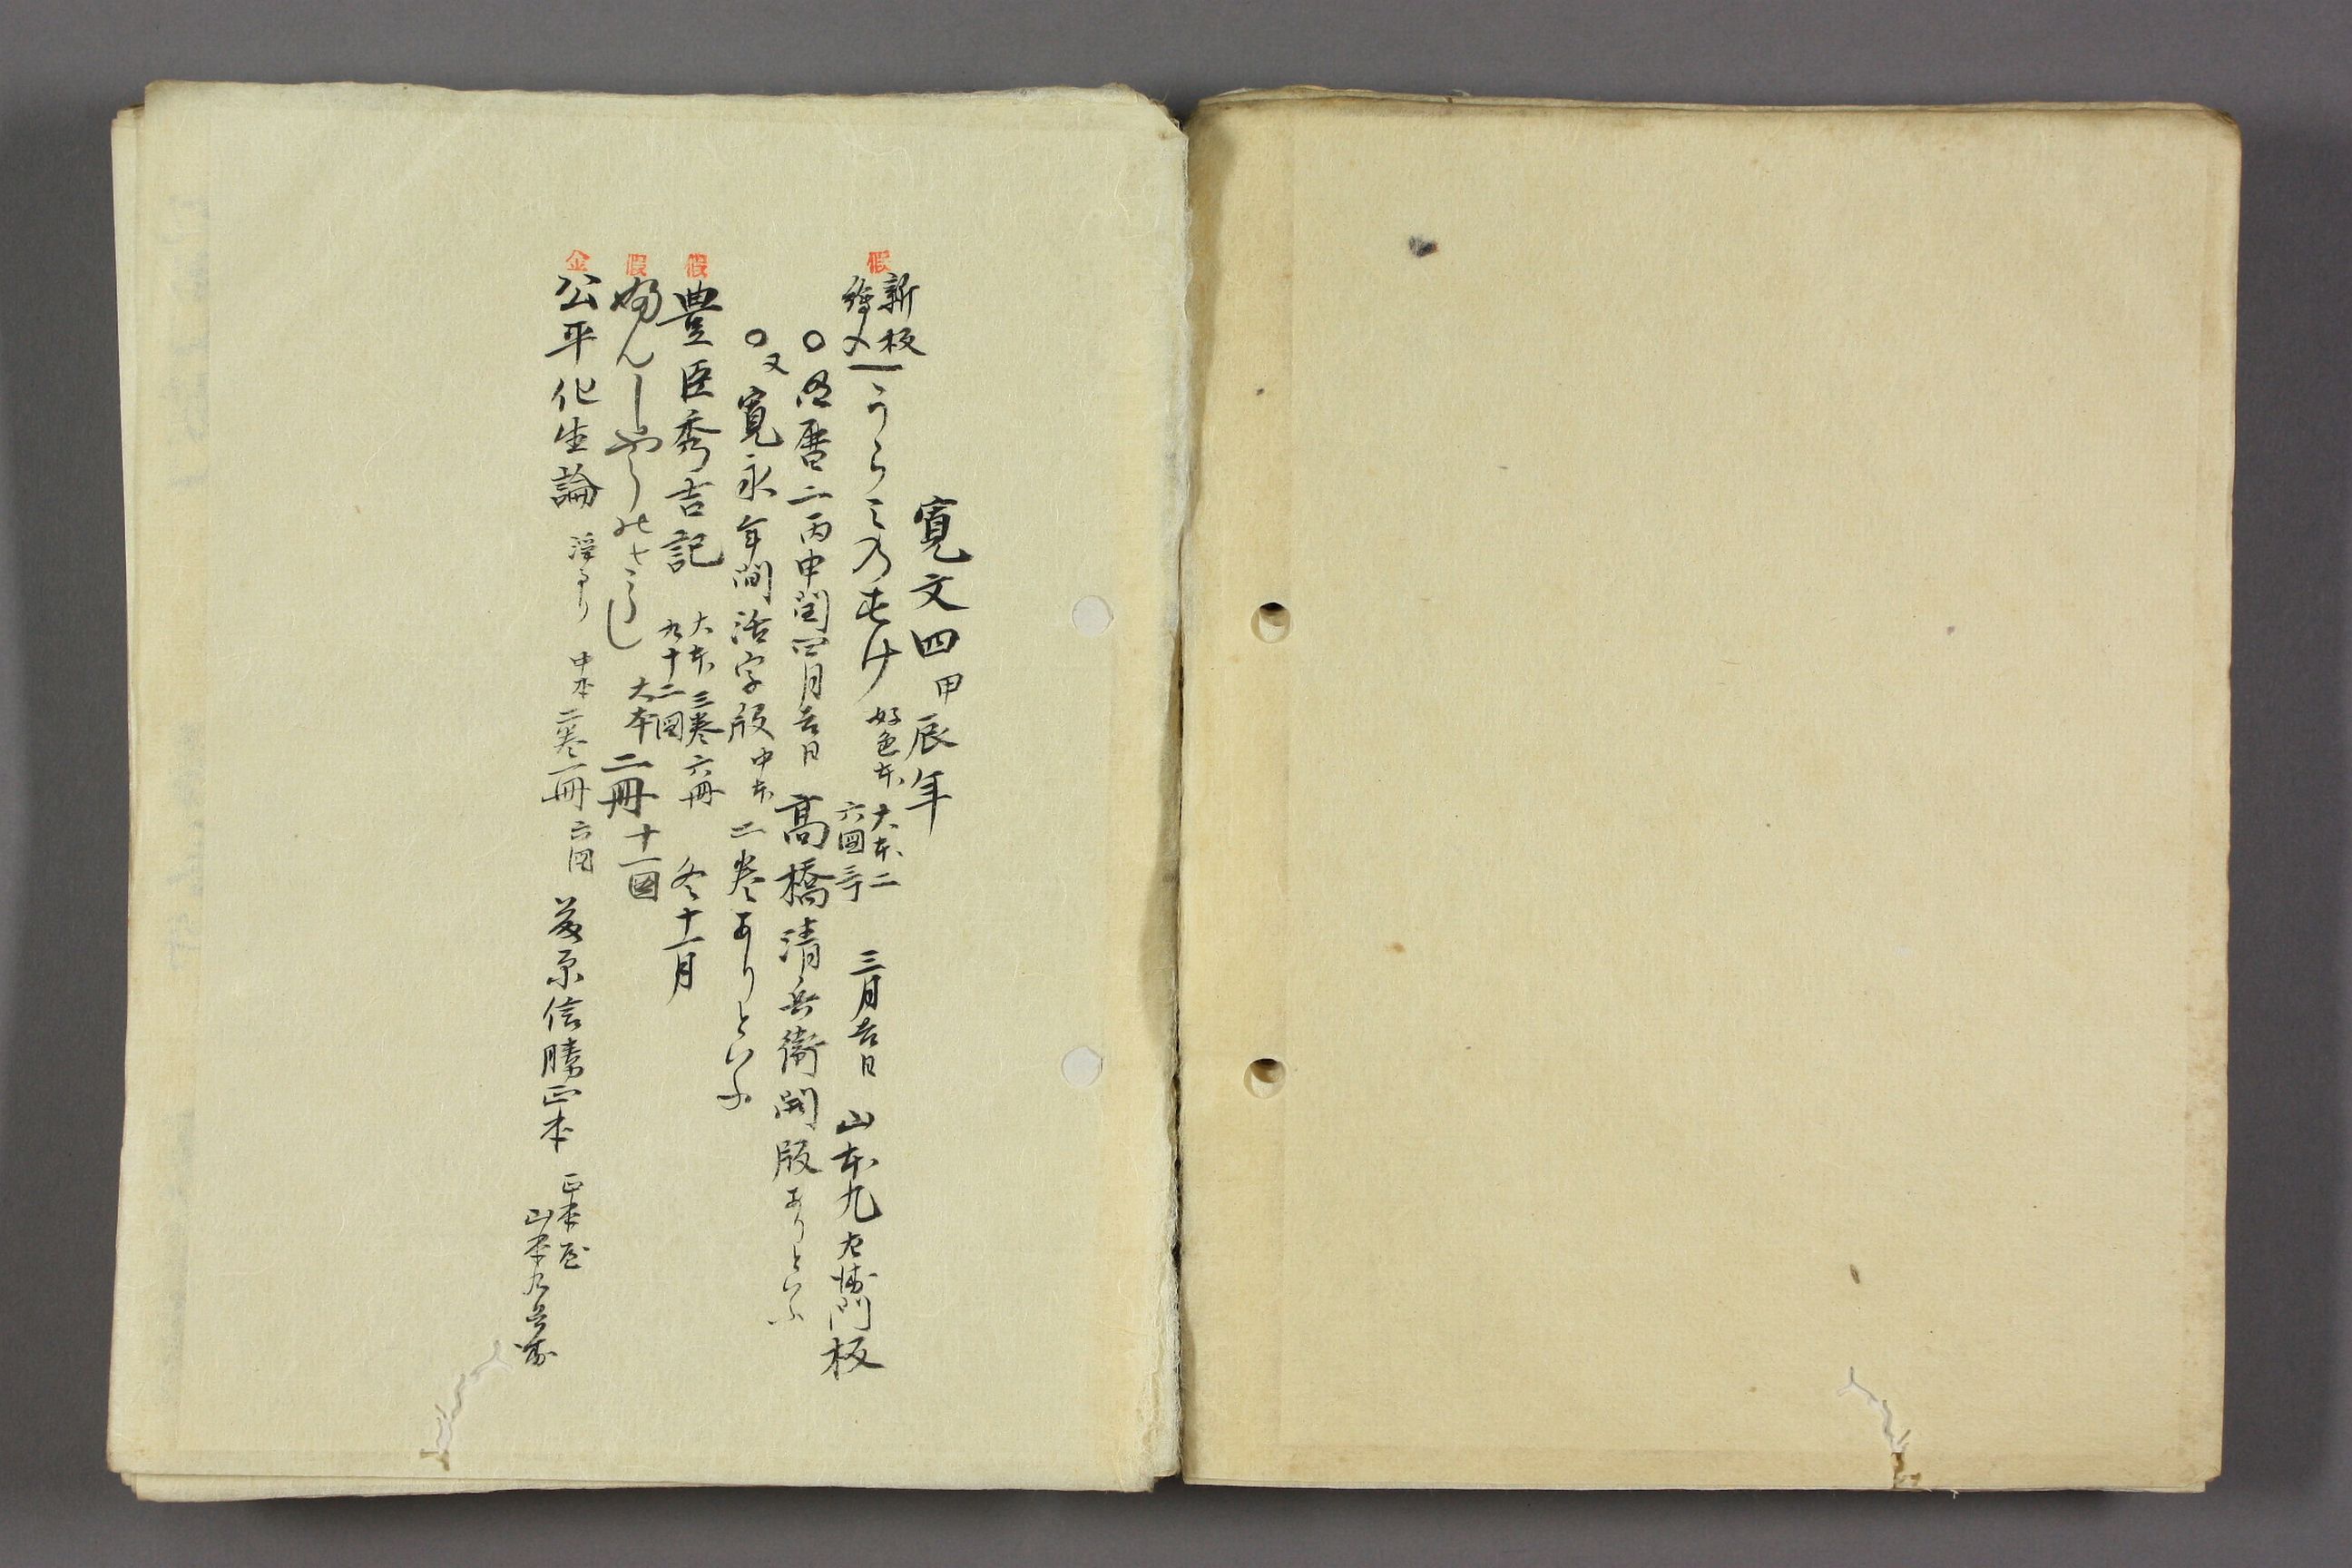 寛文四甲辰年
假
新板
繪入
うらみのすけ 好色本 大本二
六圖 三月吉日 山本九左衛門板
○明暦二丙申閏四月吉日 高橋清兵衛開版ありといふ
○又寛永年間活字版中本 二巻ありといふ
假 豊臣秀吉記 大本三巻六冊
九十二圖 冬十一月
假 大本二冊十一圖
金 公平化生論 浄るり 中本二巻一冊 六圖 藤原信勝正本 正本屋
山本九兵衛